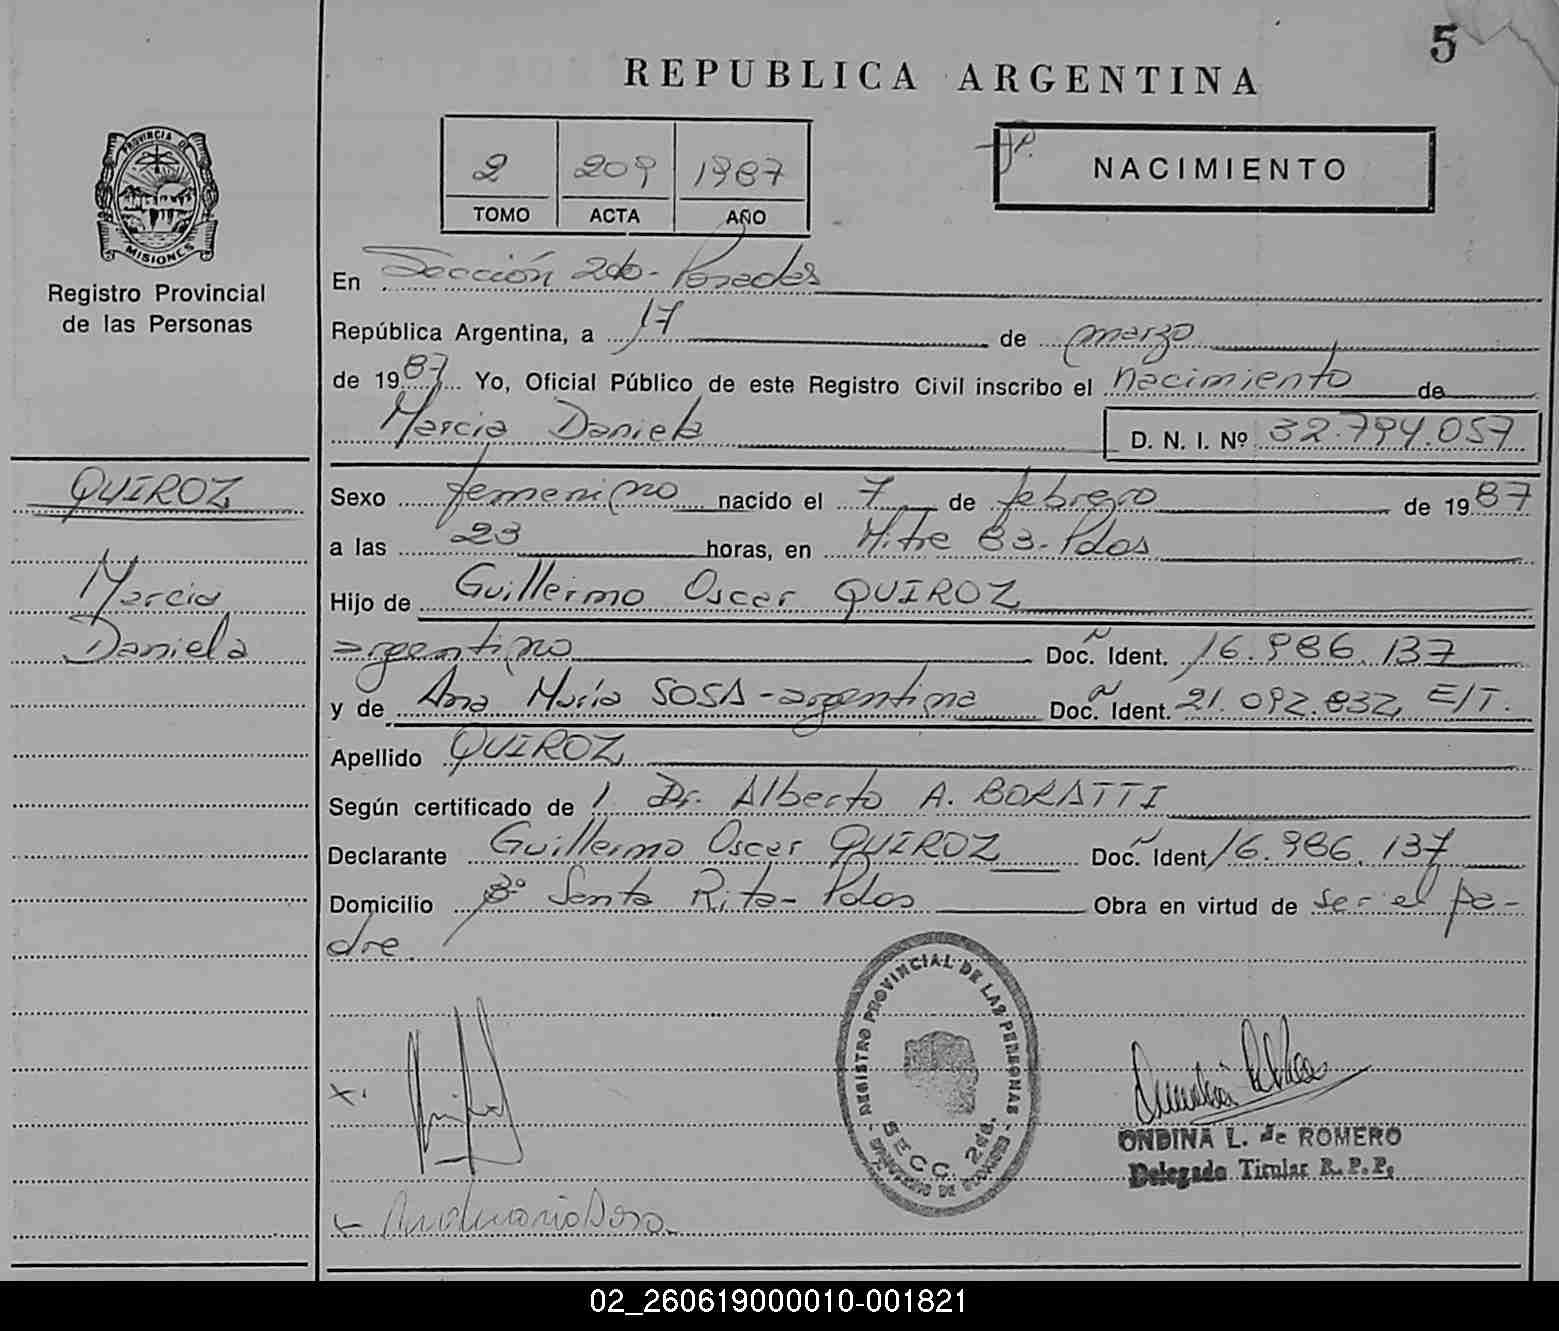 5
REPUBLICA ARGENTINA
PROVINCIA DE
MISIONES
Registro Provincial
de las Personas
2 209 1987
TOMO ACTA AÑO
NACIMIENTO
En Sección 2da- Posadas
República Argentina, a 17 de marzo
de 1987 Yo, Oficial Público de este Registro Civil inscribo el nacimiento de
Marcia Daniela D. N. I. Nº 32.794.057
QUIROZ
Marcia
Daniela
Sexo femenino nacido el 7 de febrero de 1987
a las 23 horas, en Mitre 83-Pdas
Hijo de Guillermo Oscar QUIROZ
argentino Doc. Ident. 16.986.137
y de Ana María SOSA-argentina Doc. Ident. 21.092.832 E/T.
Apellido QUIROZ
Según certificado de 1 Dr. Alberto A. BORATTI
Declarante Guillermo Oscar QUIROZ Doc. Ident 16.986.137
Domicilio Bº Santa Rita- Pdas Obra en virtud de ser el pa-
dre.
REGISTRO PROVINCIAL DE LAS PERSONAS
SECC. 2da.
ONDINA L. de ROMERO
Delegado Titular R.P.P.
Ana Maria Sosa
02_260619000010-001821